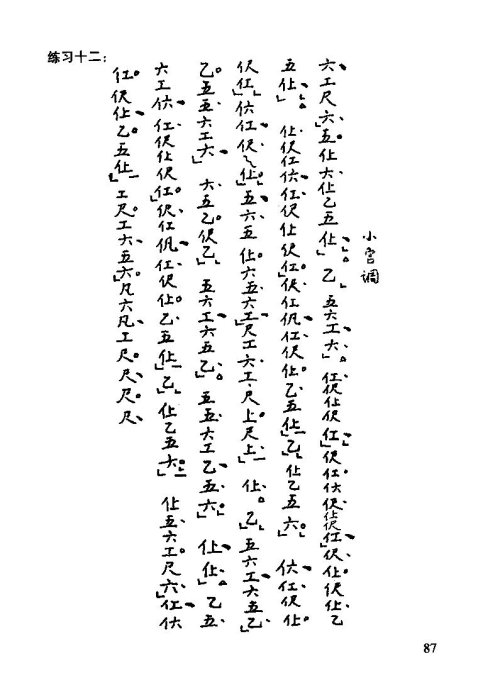 练习十二:
小宫调
六工尺六五仩六仩乙五仩乙五六工六仜伬仩伬仜伬仜𠆾伬仩伬仜伬仩伬仩乙
五仩仩伬仜𠆾仜伬仩伬仜伬仜𠆩仜伬仩乙五仩乙仩乙五六𠆾仜伬仩
伬仜𠆾仜伬仩五六五仩六五六工尺工六工尺上尺上仩乙五六工六五乙
乙五五六工六六五乙伬乙五六工六五乙五五六工乙五六仩仩乙五
六工𠆾仜伬仩伬仜伬仜𠆩仜伬仩乙五仩乙仩乙五六仩五六工尺六仜𠆾
仜伬仩乙五仩工尺工六五六凡六凡工尺尺尺尺
87